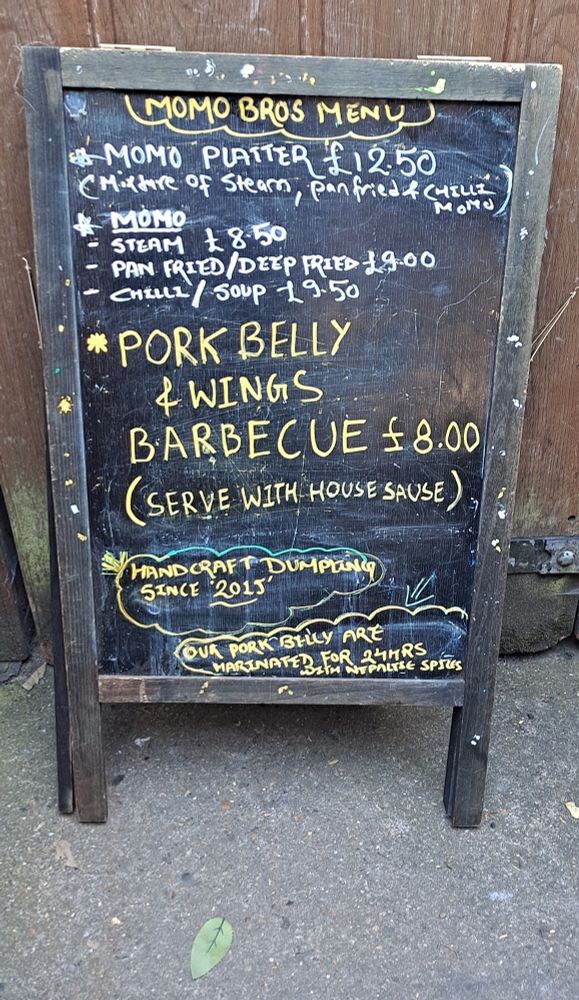 MOMO BROS MENU
* MOMO PLATTER £12.50
(Mixture of Steam, pan fried & CHILLI
MOMO)
* MOMO
- STEAM £8.50
- PAN FRIED/DEEP FRIED £9.00
- CHILLI/SOUP £9.50
* PORK BELLY
& WINGS
BARBECUE £8.00
(SERVE WITH HOUSE SAUSE)
HANDCRAFT DUMPLING
SINCE '2015'
OUR PORK BELLY ARE
MARINATED FOR 24HRS
WITH NEPALIE SPICES